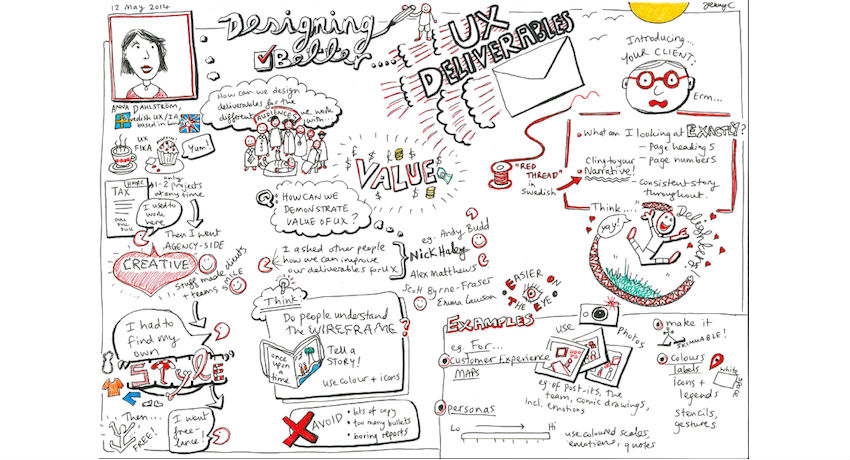 12 May 2014
Designing
Better...
UX
DELIVERABLES
ANNA DAHLSTRÖM,
Swedish UX/IA
UX
FIKA
Yum!
TAX
HMRC
only
1-2 projects
at any time
I used to
work here
Then I went
AGENCY-SIDE
CREATIVE
Stuff made clients
+ teams SMILE
I had to
find my
own
"STYLE"
Then...
FREE!
I went
free-
lance.
How can we design
deliverables for the
different AUDIENCES we work
with...
VALUE
Q:
HOW CAN WE
DEMONSTRATE
VALUE OF UX?
I asked other people
how we can improve
our deliverables for UX
eg. Andy Budd
Nick Haley
Alex Matthews
Scott Byrne-Fraser
Emma Lawson
Think
Do people understand
the WIREFRAME?
once
upon
a
time
Tell a
STORY!
use colour + icons
AVOID
• lots of copy
• too many bullets
• boring reports
EASIER ON
THE EYE
Introducing...
YOUR CLIENT:
Erm...
• What am I looking at EXACTLY?
- Page headings
- page numbers
Cling to your
Narrative!
- Consistent story
throughout.
"RED
THREAD"
in
Swedish
Think....
yay!
Delighters!
EXAMPLES
eg. For...
Customer Experience
MAPS
USE
Photos
eg of post-its, the
team, comic drawings,
incl. emotions
personas
Lo
Hi
use coloured scales,
emotions, quotes
make it
SKIMMABLE!
Colours
labels
Icons +
legends
stencils,
gestures
white
space